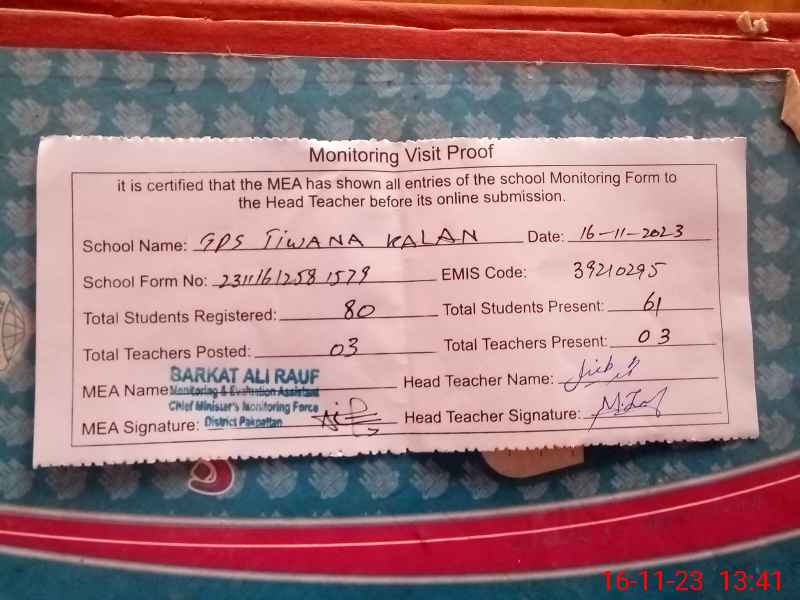 Monitoring Visit Proof
it is certified that the MEA has shown all entries of the school Monitoring Form to
the Head Teacher before its online submission.
School Name: GPS TIWANA KALAN Date: 16-11-2023
School Form No: 23111612581579 EMIS Code: 39210295
Total Students Registered: 80 Total Students Present: 61
Total Teachers Posted: 03 Total Teachers Present: 03
MEA Name SARKAT ALI RAUF Head Teacher Name:
Monitoring & Evaluation Assistant
Chief Minister's Monitoring Force
MEA Signature: District Pakpattan Head Teacher Signature:
16-11-23 13:41